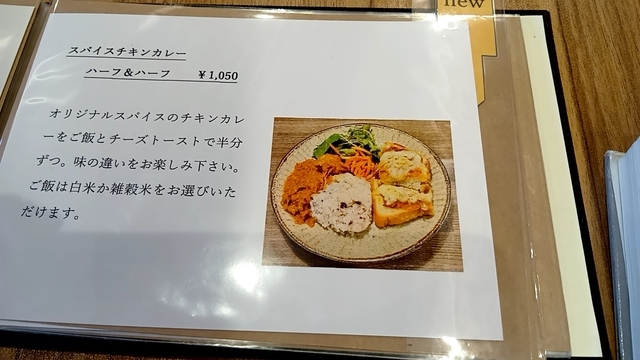 new
スパイスチキンカレー
ハーフ&ハーフ ¥1,050
オリジナルスパイスのチキンカレ
ーをご飯とチーズトーストで半分
ずつ。味の違いをお楽しみ下さい。
ご飯は白米か雑穀米をお選びいた
だけます。